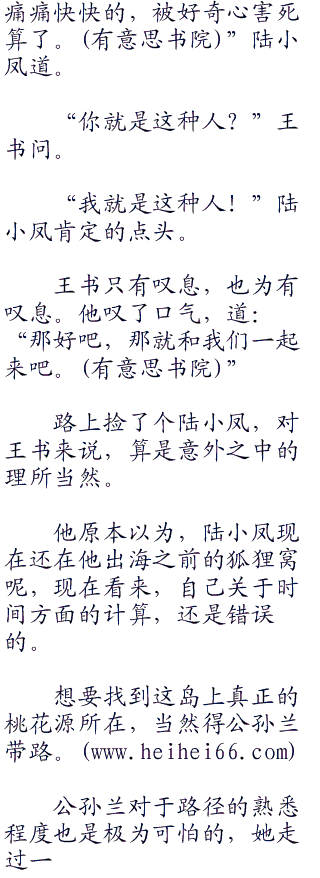 痛痛快快的，被好奇心害死
算了。(有意思书院)”陆小
凤道。
“你就是这种人？”王
书问。
“我就是这种人！”陆
小凤肯定的点头。
王书只有叹息，也为有
叹息。他叹了口气，道：
“那好吧，那就和我们一起
来吧。(有意思书院)”
路上捡了个陆小凤，对
王书来说，算是意外之中的
理所当然。
他原本以为，陆小凤现
在还在他出海之前的狐狸窝
呢，现在看来，自己关于时
间方面的计算，还是错误
的。
想要找到这岛上真正的
桃花源所在，当然得公孙兰
带路。(www.heihei66.com)
公孙兰对于路径的熟悉
程度也是极为可怕的，她走
过一